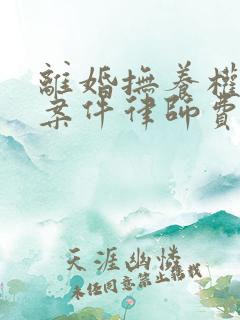 離婚撫養權
案件律師費
天涯幽憐
未經同意禁止轉載